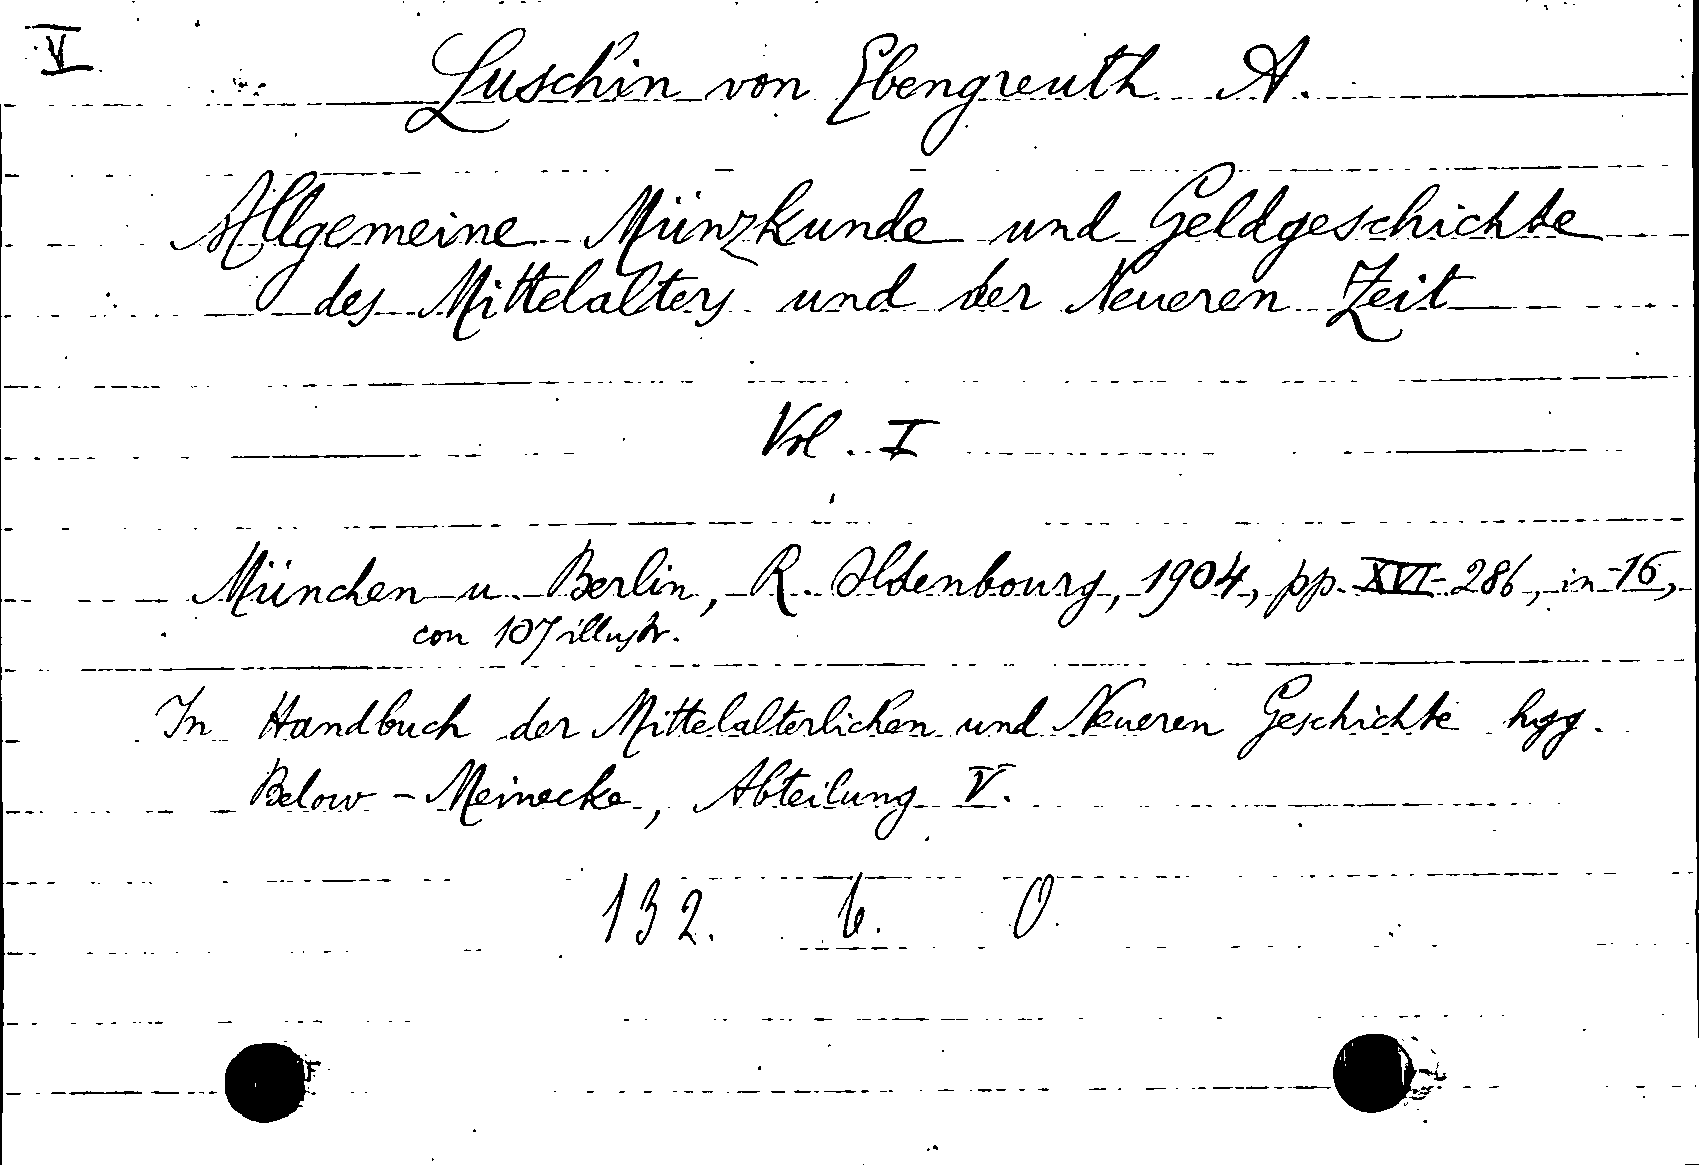 V
Luschin von Ebengreuth A.
Allgemeine Münzkunde und Geldgeschichte
des Mittelalters und der Neueren Zeit
Vol. I
München u. Berlin, R. Oldenbourg, 1904, pp. XVI-286, in-16,
con 107 illustr.
In Handbuch der Mittelalterlichen und Neueren Geschichte hgg.
Below - Meinecke, Abteilung V.
132. 6. O.